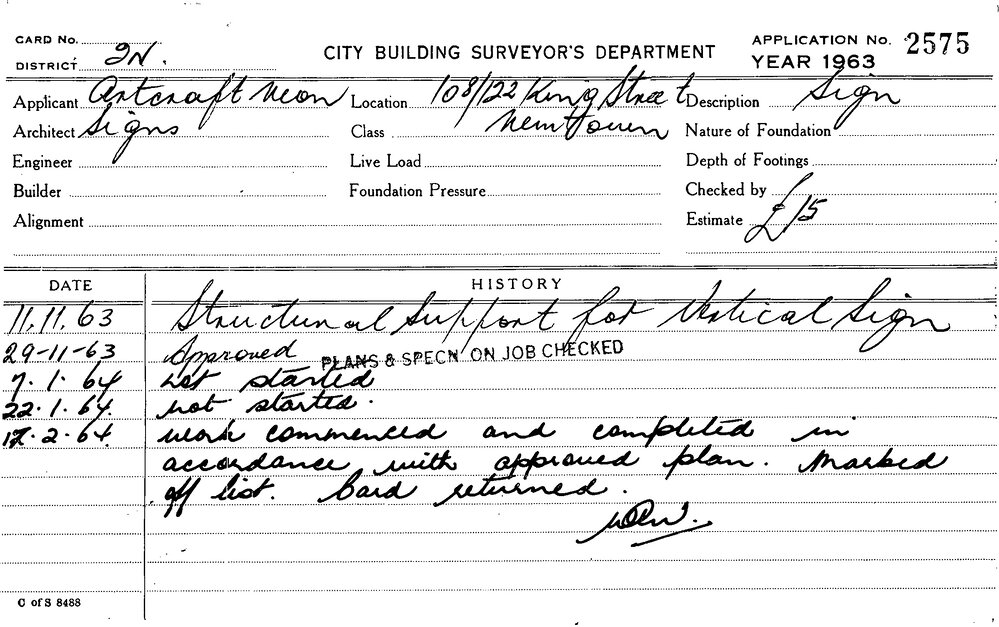 CARD No.
DISTRICT 2N.
CITY BUILDING SURVEYOR'S DEPARTMENT
APPLICATION No. 2575
YEAR 1963
Applicant Artcraft Neon Location 108/122 King Street Description Sign
Architect Signs Class Newtown Nature of Foundation
Engineer Live Load Depth of Footings
Builder Foundation Pressure Checked by
Alignment Estimate £15
DATE HISTORY
11.11.63 Structural Support for Vertical Sign
29-11-63 Approved PLANS & SPECN ON JOB CHECKED
7.1.64 Not started
22.1.64. not started.
17.2.64. work commenced and completed in
accordance with approved plan. Marked
off list. Card returned.
C of S 8488